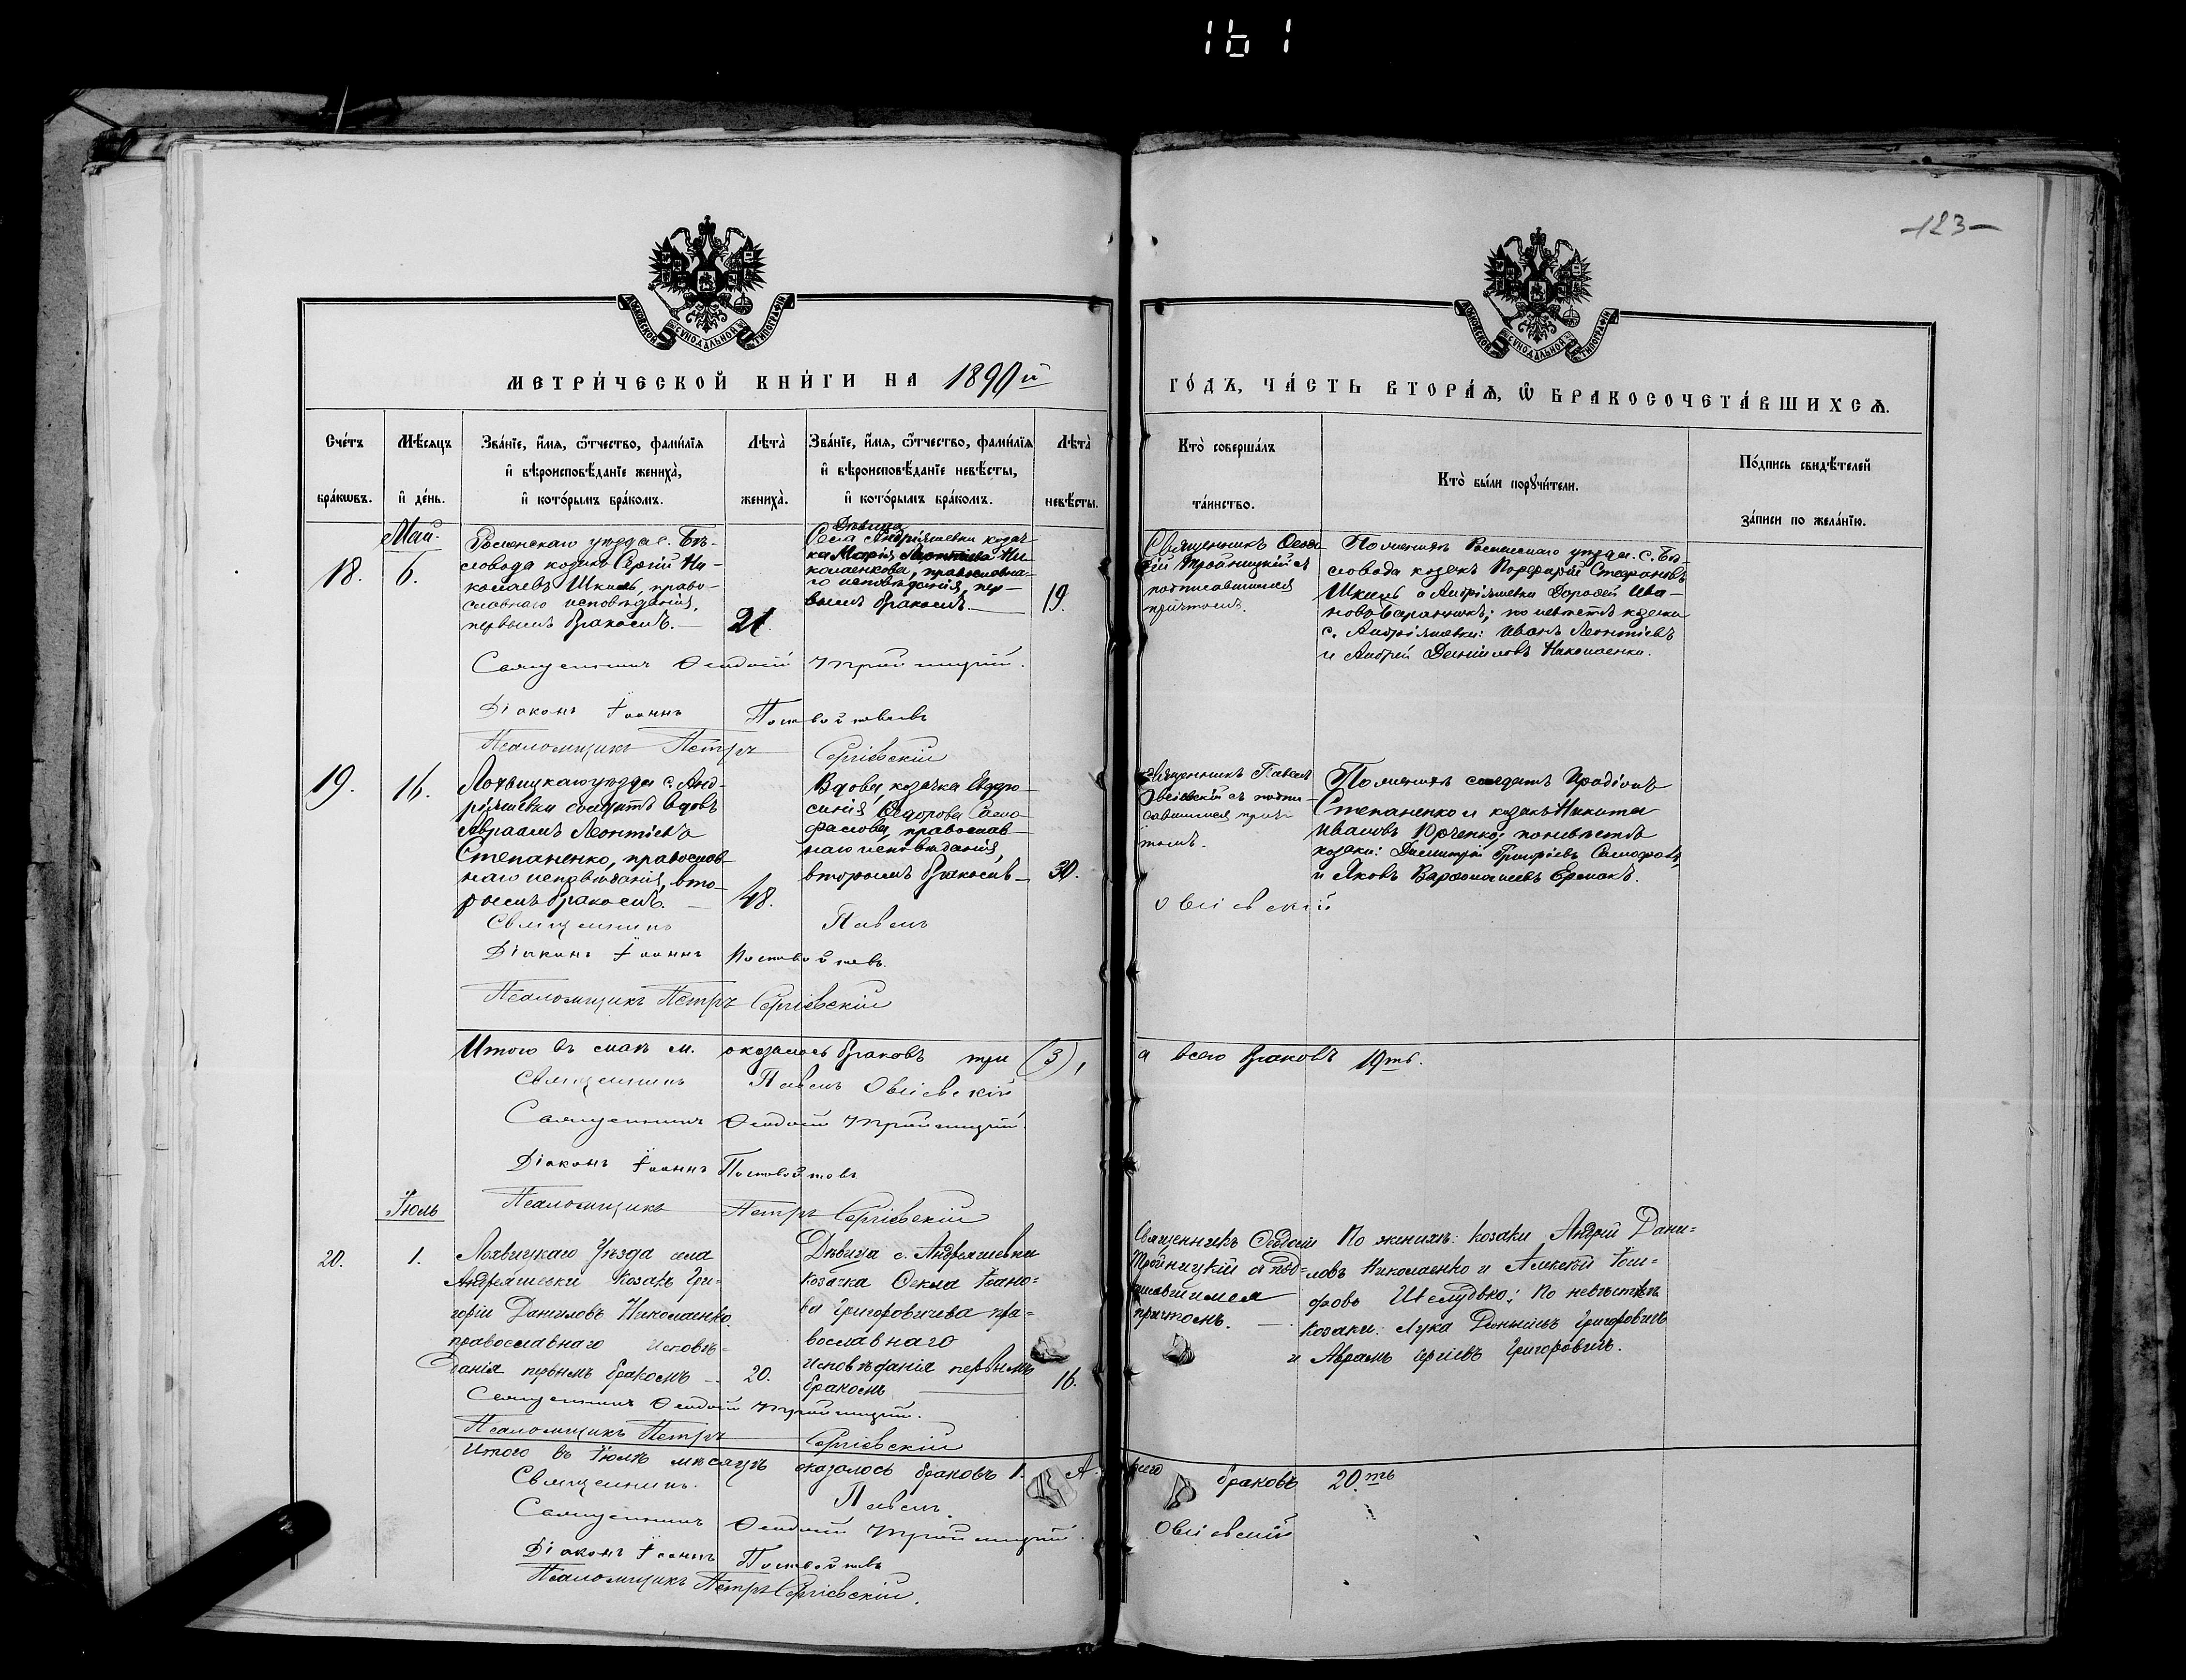 161
-123-
МОСКОВСКОЙ СѴНОДАЛЬНОЙ ТИПОГРАФІИ
МОСКОВСКОЙ СѴНОДАЛЬНОЙ ТИПОГРАФІИ
МЕТРИ́ЧЕСКОЙ КНИ́ГИ НА 1890й
ГО́ДЪ, ЧА́СТЬ ВТОРА́Ѧ, Ѿ БРАКОСОЧЕТА́ВШИХСѦ.
Сче́тъ бра́кѡвъ.
Мѣ́сяцъ и҆ де́нь.
Зва́нїе, и҆́мя, ѻ҆́тчество, фами́лїя
и҆ вѣроисповѣ́данїе жениха̀,
и҆ кото́рымъ бра́комъ.
Лѣта̀ жениха̀.
Зва́нїе, и҆́мя, ѻ҆́тчество, фами́лїя
и҆ вѣроисповѣ́данїе невѣ́сты,
и҆ кото́рымъ бра́комъ.
Лѣта̀ невѣ́сты.
Кто̀ соверша́лъ
та́инство.
Кто̀ бы́ли поручи́тели.
По́дпись свидѣ́телей
за́писи по жела́нїю.
Май.
18.
6.
Роменскаго уѣзда с. Бѣ-
ловода козакъ Сергій Ни-
колаевъ Шкиль, право-
славнаго исповѣданія,
первымъ бракомъ.
21.
Дѣвица
Села Андріяшевки козач-
ка Марія Леонтіева Ни-
колаенкова, православна-
го исповѣданія, пер-
вымъ бракомъ.
19.
Священникъ Ѳеодо-
сій Тройницкій съ
подписавшимся
причтомъ.
По женихѣ Роменскаго уѣзда с. Бѣ-
ловода козакъ Порфирій Стефановъ
Шкиль и Андріяшевки Дорофей Ива-
новъ Баранникъ; по невѣстѣ козаки
с. Андріяшевки: Иванъ Леонтіевъ
и Андрей Даніиловъ Николаенки.
Священникъ Ѳеодосій Тройницкій.
Діаконъ Іоаннъ
Псаломщикъ Петръ Сергіевскій
19.
16.
Лохвицкаго уѣзда с. Анд-
ріяшевки солдатъ вдовъ
Авраамъ Леонтіевъ
Степаненко, православ-
наго исповѣданія, вто-
рымъ бракомъ.
48.
Вдова, козачка Евдро-
синія Ѳедорова Само-
фалова, православ-
наго исповѣданія,
вторымъ бракомъ
30.
Священникъ Павелъ
Овсіевскій съ подпи-
савшимся прич-
томъ.
По женихѣ солдатъ Иродіонъ
Степаненко и козакъ Никита
Ивановъ Юрченко; по невѣстѣ
козаки: Димитрій Григоріевъ Самофалъ
и Яковъ Варфоломіевъ Ермакъ.
Священникъ Павелъ Овсіевскій
Діаконъ Іоаннъ
Псаломщикъ Петръ Сергіевскій
Итого въ маѣ м. оказалось браковъ три (3), а всего браковъ 19ть.
Священникъ Павелъ Овсіевскій
Священникъ Ѳеодосій Тройницкій.
Діаконъ Іоаннъ
Псаломщикъ Петръ Сергіевскій
Іюль
20.
1.
Лохвицкаго Уѣзда села
Андреяшевки Козакъ Гри-
горій Даниловъ Николаенко
православнаго исповѣ-
данія первымъ бракомъ
20.
Дѣвица с. Андреяшевки
Козачка Ѳекла Іоано-
ва Григоровичева пра-
вославнаго
исповѣданія первымъ
бракомъ
16.
Священникъ Ѳеодосій
Тройницкій съ под-
писавшимся
причтомъ.
По женихѣ: козаки Андрій Дани-
ловъ Николаенко и Алексѣй Іоси-
фовъ Шелудько; По невѣстѣ
Козаки: Лука Григоровичъ
и Аврамъ Сергіевъ Григоровичъ.
Священникъ Ѳеодосій Тройницкій.
Псаломщикъ Петръ Сергіевскій
Итого въ Іюлѣ мѣсяцѣ оказалось браковъ 1. А всего браковъ 20.ть
Священникъ Павелъ Овсіевскій
Священникъ Ѳеодосій Тройницкій.
Діаконъ Іоаннъ
Псаломщикъ Петръ Сергіевскій.